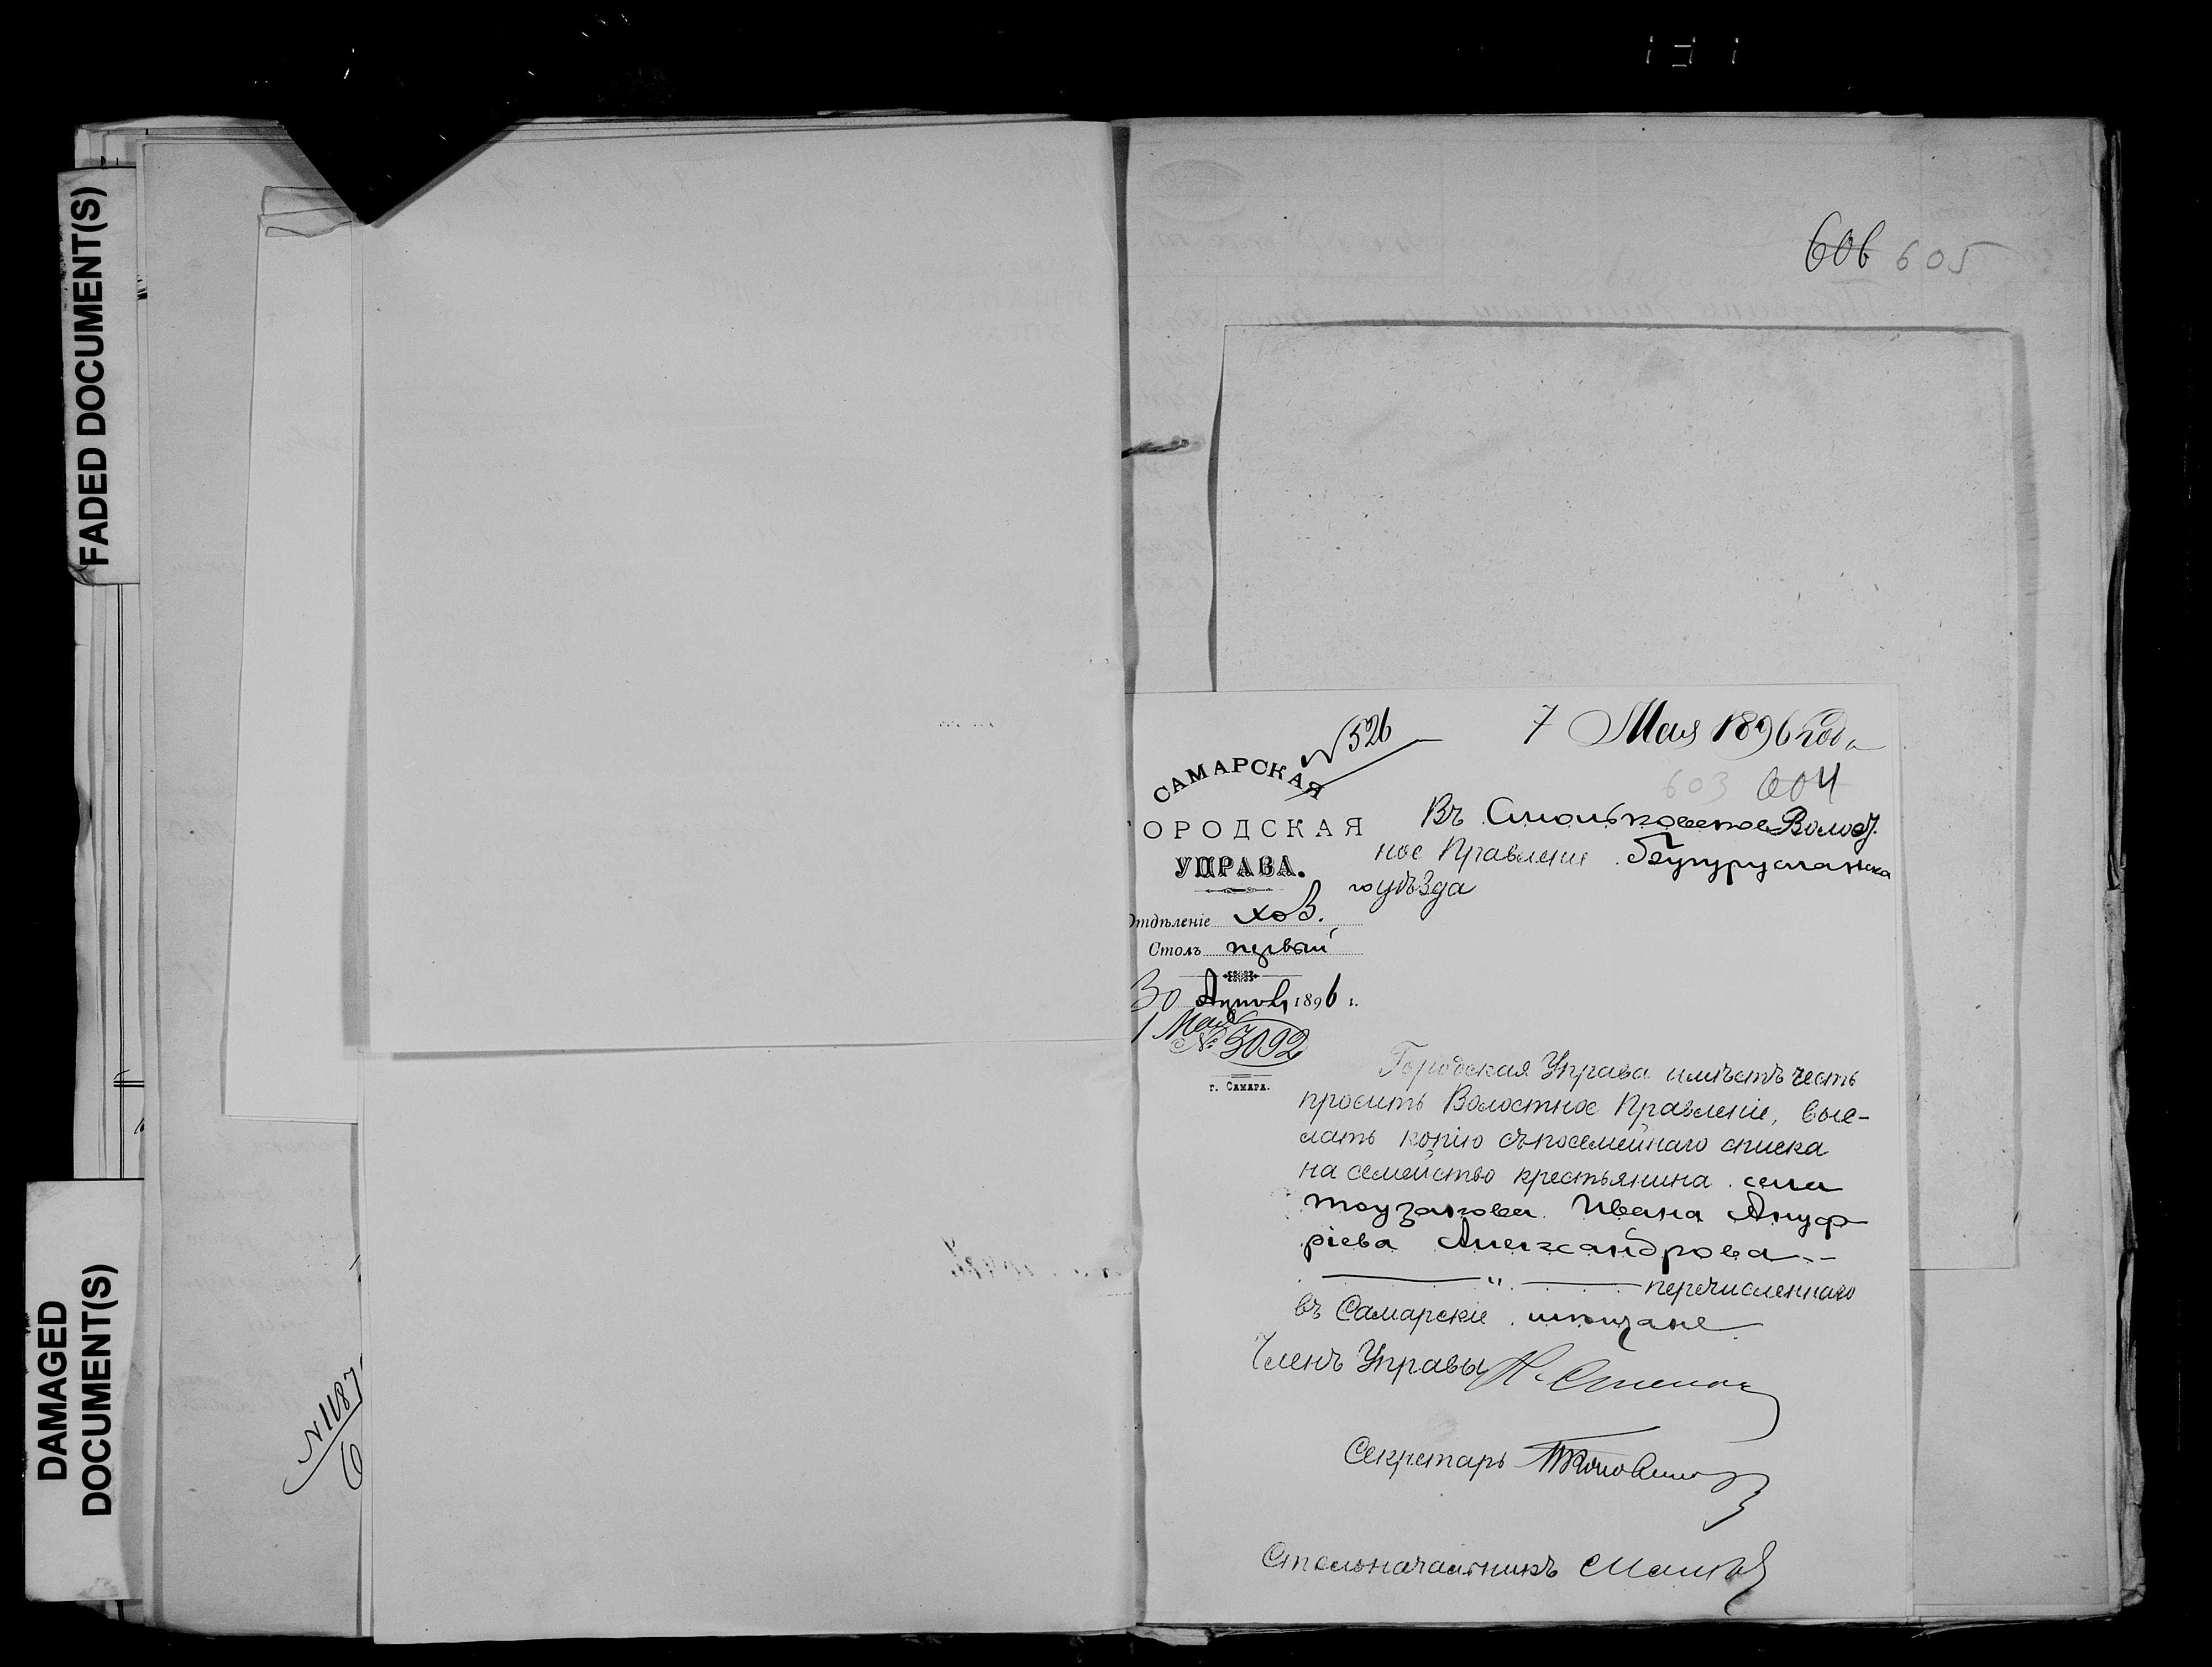 FADED DOCUMENT(S)
DAMAGED
DOCUMENT(S)
N 1187
6
606 605
N 526
7 Мая 1896 года
603 604
САМАРСКАЯ
ОРОДСКАЯ
УПРАВА.
Отдѣленіе хоз.
Столъ первый
30 Апрѣля 1896 г.
1 Мая
№ 3092
г. САМАРА.
Въ Смольковское Волост.
ное Правленіе Бугурусланска
го уѣзда
Городская Управа имѣетъ честь
просить Волостное Правленіе, выс-
лать копію съ посемейнаго списка
на семейство крестьянина села
Тоузакова Ивана Ануф
ріева Александрова
" перечисленнаго
въ Самарскіе мѣщане
Членъ Управы
Секретарь
Столоначальникъ